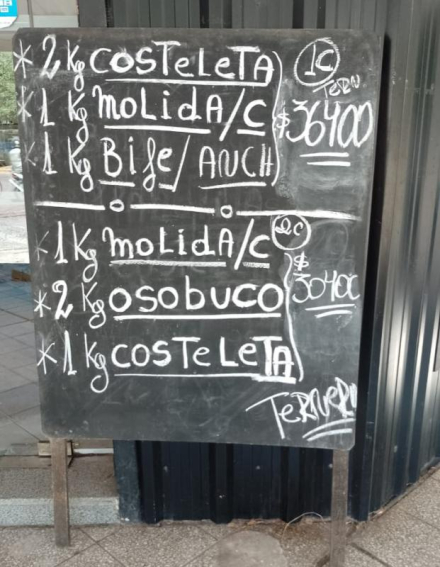 * 2 Kg COSTELETA
1C
TERN
* 1 Kg MOLIDA/C
$36400
* 1 Kg Bife/ANCH
* 1 Kg MOLIDA/C
2C
* 2 Kg OSOBUCO
$30400
* 1 Kg COSTELETA
TERNERA